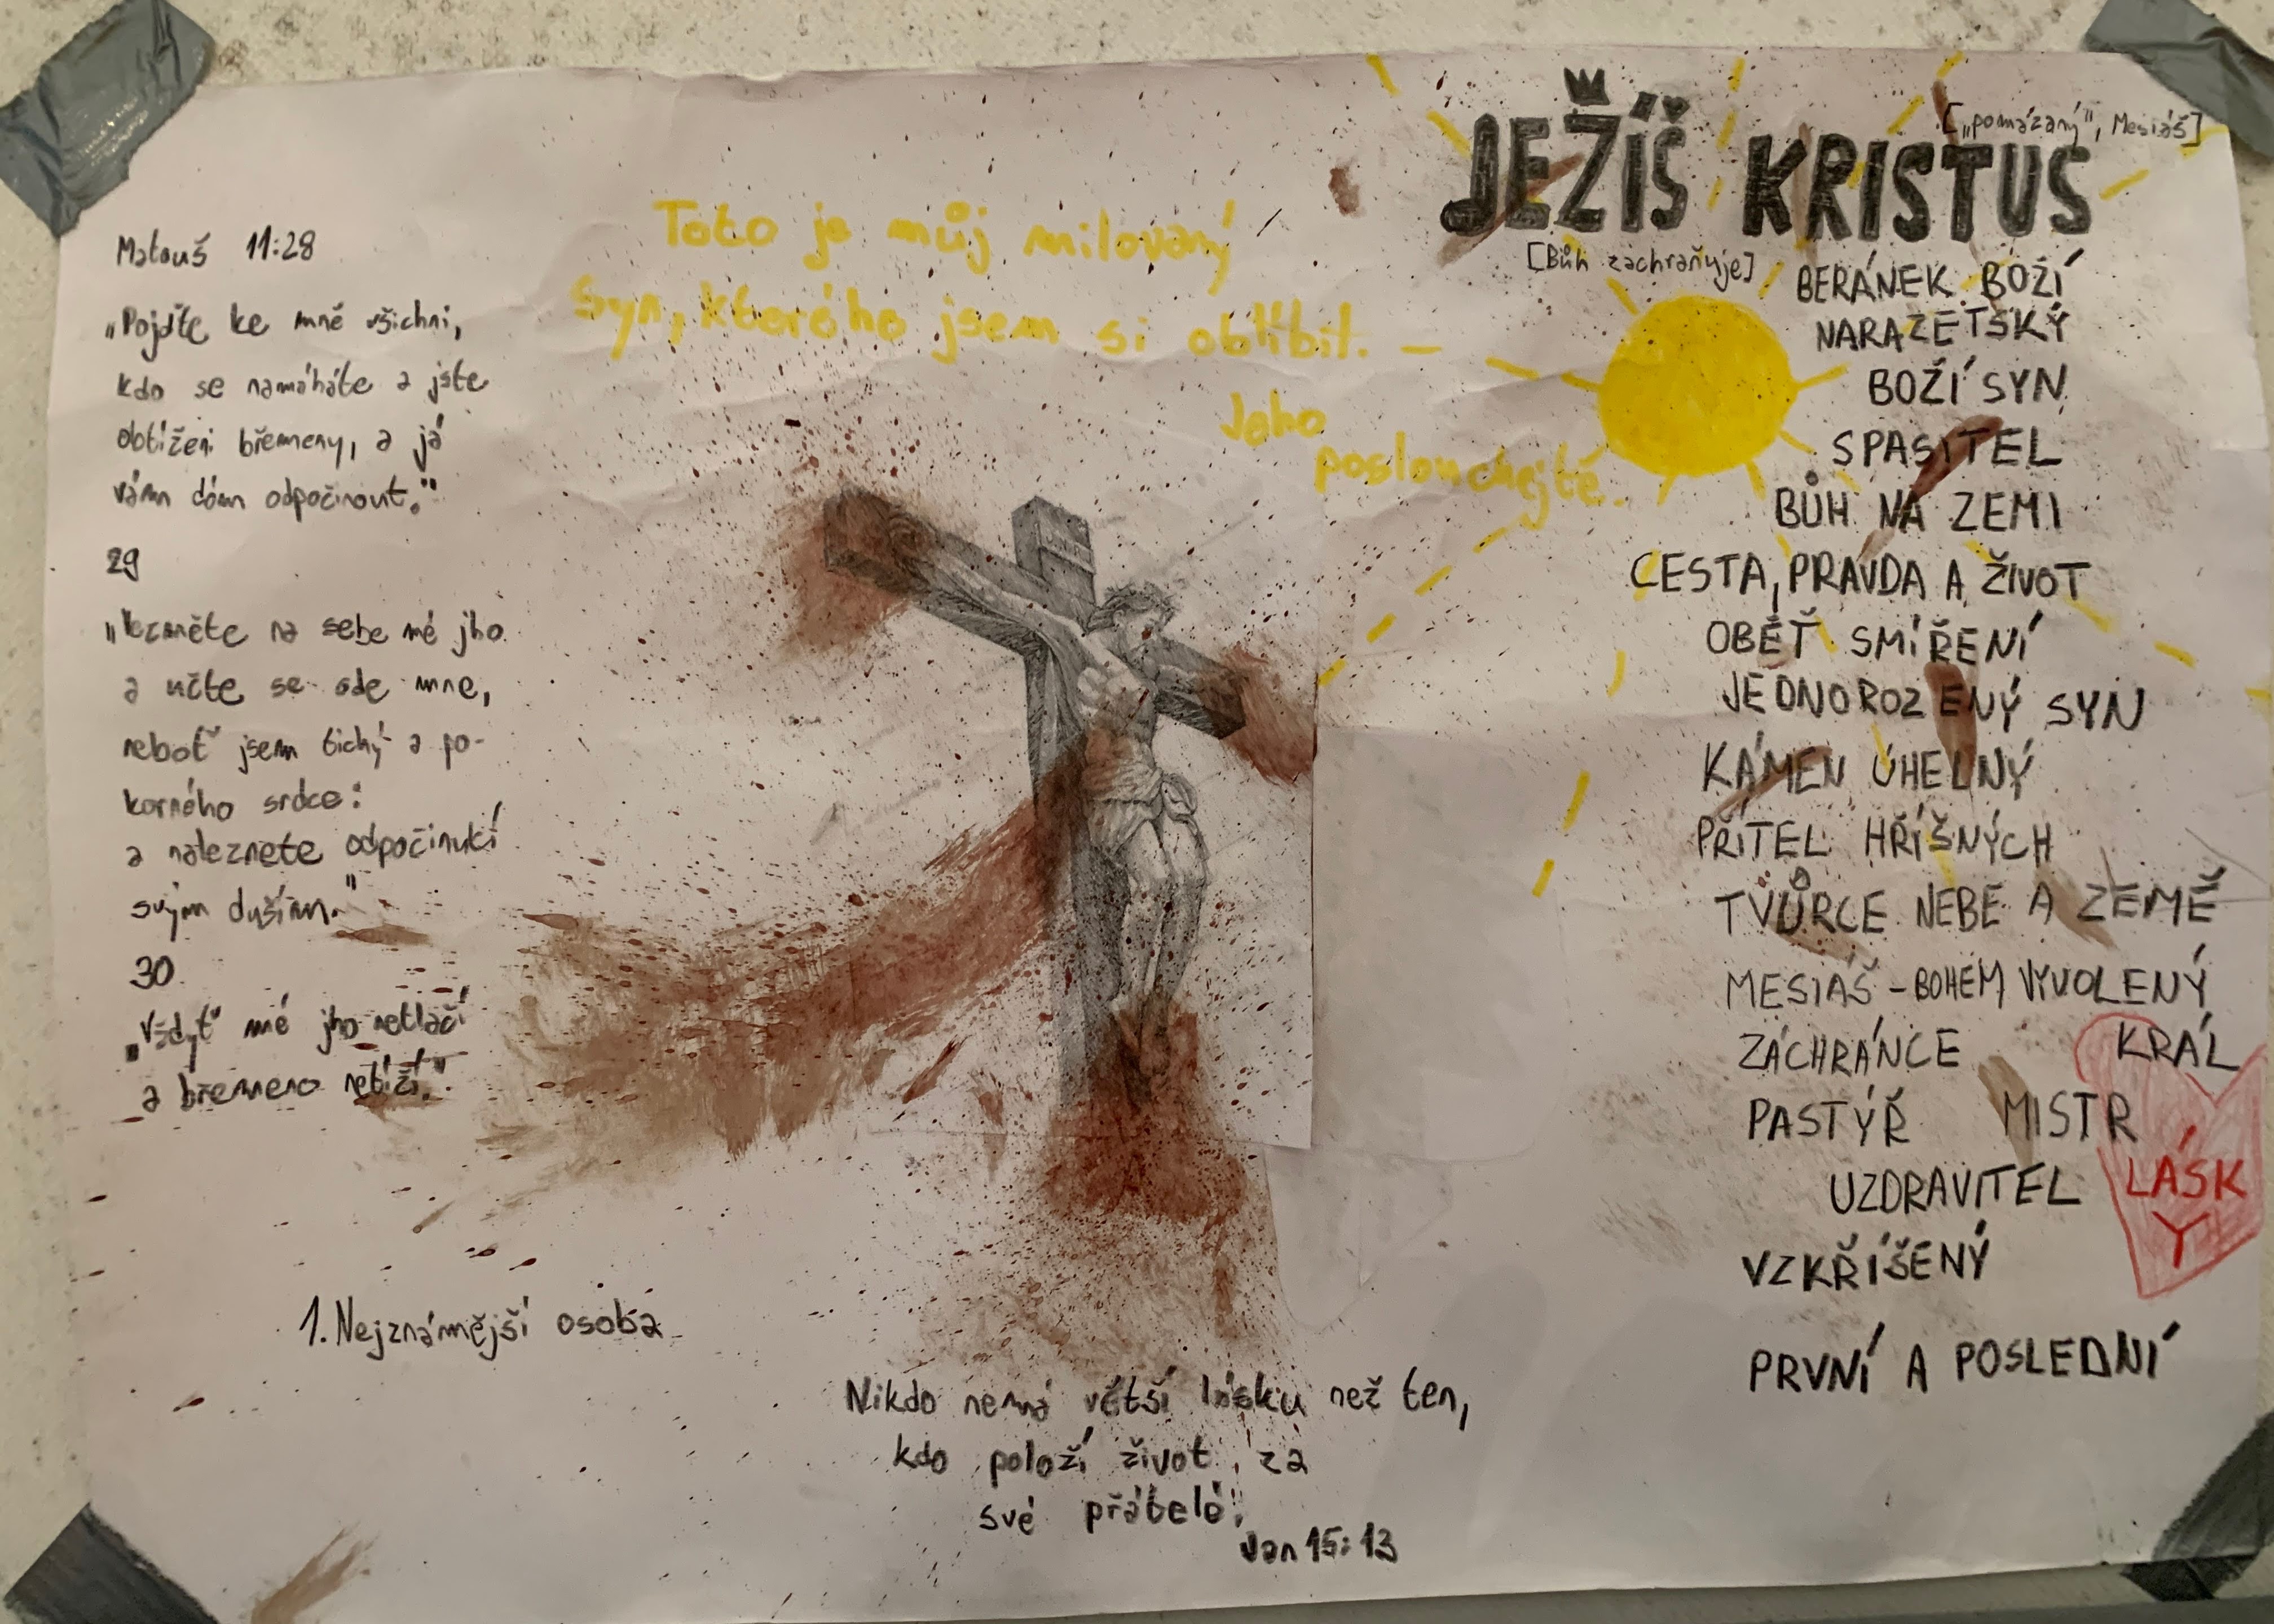 Matouš 11:28
„Pojďte ke mně všichni,
kdo se namáháte a jste
obtíženi břemeny, a já
vám dám odpočinout."
29
„Vezměte na sebe mé jho
a učte se ode mne,
neboť jsem tichý a po-
korného srdce:
a naleznete odpočinutí
svým duším."
30
„Vždyť mé jho netlačí
a břemeno netíží.".
1. Nejznámější osoba
Toto je můj milovaný
syn, kterého jsem si oblíbil. –
Jeho
poslouchejte.
Nikdo nemá větší lásku než ten,
kdo položí život za
své přátelé.
Jan 15:13
JEŽÍŠ KRISTUS
[„pomázaný", Mesiáš]
[Bůh zachraňuje]
BERÁNEK BOŽÍ
NARAZETSKÝ
BOŽÍ SYN
SPASITEL
BŮH NA ZEMI
CESTA, PRAVDA A ŽIVOT
OBĚŤ SMÍŘENÍ
JEDNOROZENÝ SYN
KÁMEN ÚHELNÝ
PŘÍTEL HŘÍŠNÝCH
TVŮRCE NEBE A ZEMĚ
MESIÁŠ - BOHEM VYVOLENÝ
ZÁCHRÁNCE KRÁL
PASTÝŘ MISTR
UZDRAVITEL LÁSK
Y
VZKŘÍŠENÝ
PRVNÍ A POSLEDNÍ